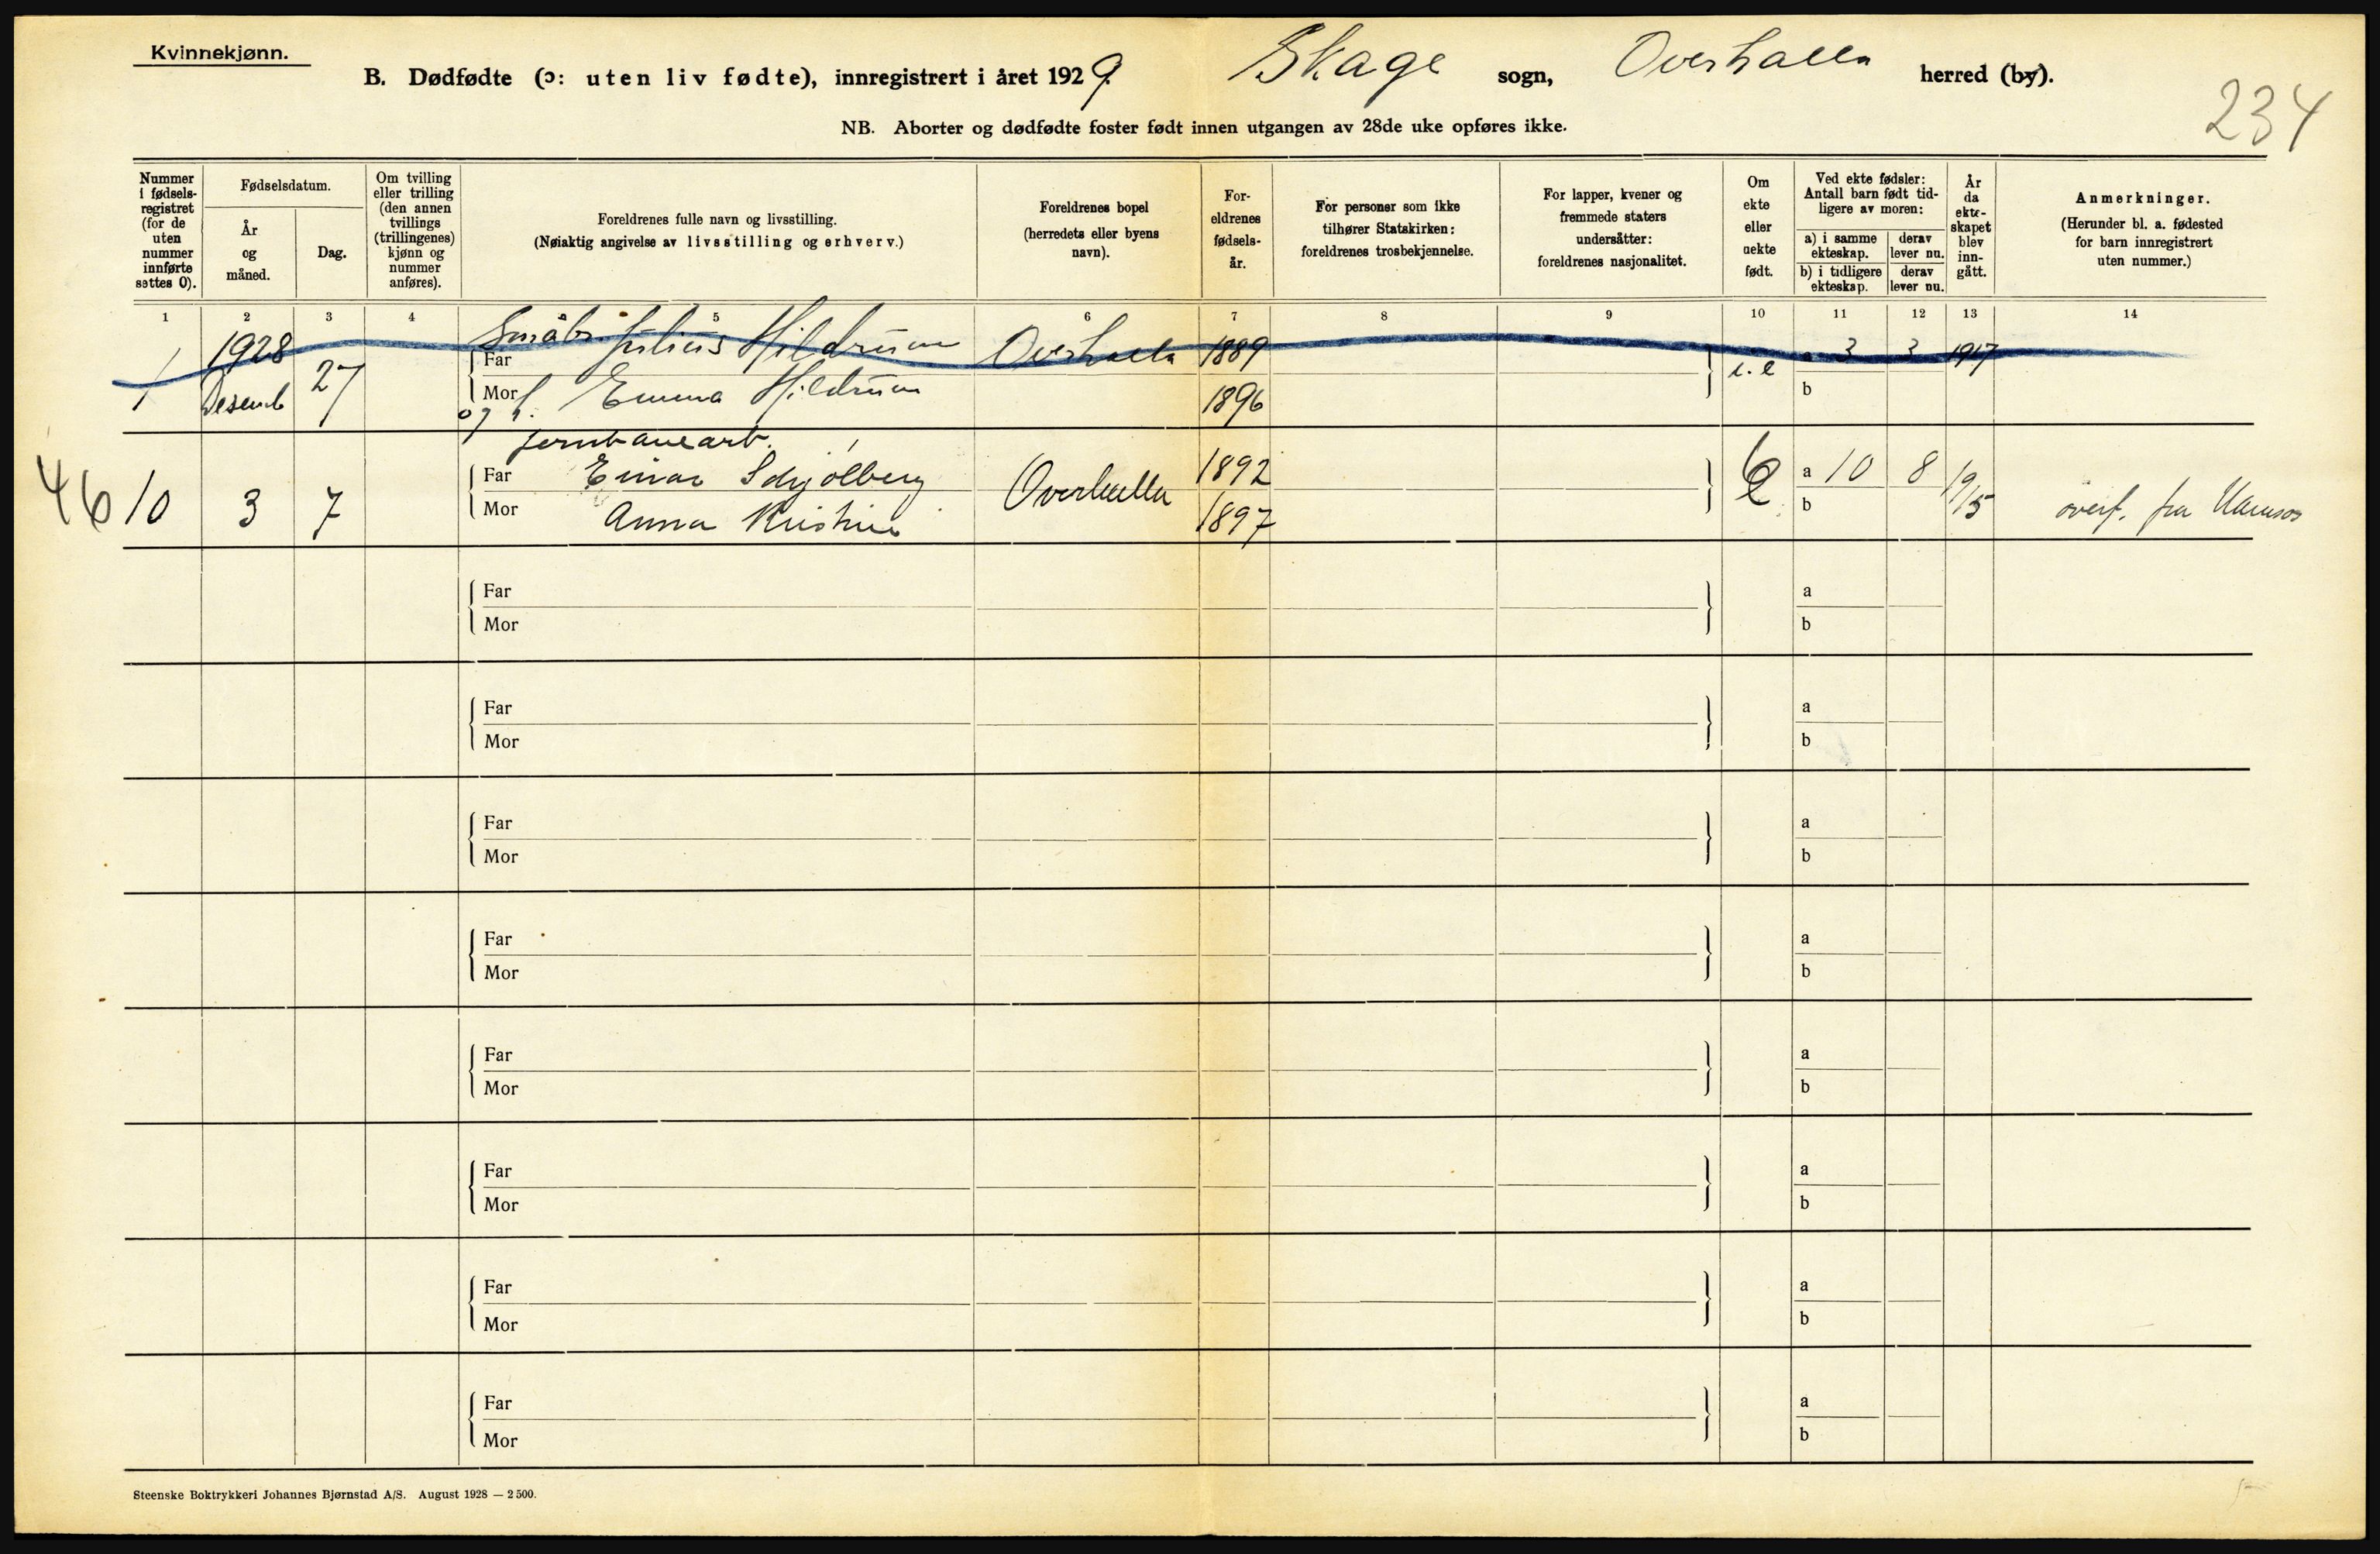 Kvinnekjønn.
B. Dødfødte (ɔ: uten liv fødte), innregistrert i året 1929 Skage sogn, Overhalla herred (by).
234
NB. Aborter og dødfødte foster født innen utgangen av 28de uke opføres ikke.
Nummer i fødsels-registret (for de uten nummer innførte settes 0).
Fødselsdatum.
År og måned.
Dag.
Om tvilling eller trilling (den annen tvillings (trillingenes) kjønn og nummer anføres).
Foreldrenes fulle navn og livsstilling.
(Nøiaktig angivelse av livsstilling og erhverv.)
Foreldrenes bopel (herredets eller byens navn).
For-eldrenes fødsels-år.
For personer som ikke tilhører Statskirken: foreldrenes trosbekjennelse.
For lapper, kvener og fremmede staters undersåtter: foreldrenes nasjonalitet.
Om ekte eller uekte født.
Ved ekte fødsler: Antall barn født tid-ligere av moren:
a) i samme ekteskap.
derav lever nu.
b) i tidligere ekteskap.
derav lever nu.
År da ekte-skapet blev inn-gått.
Anmerkninger.
(Herunder bl. a. fødested for barn innregistrert uten nummer.)
1 2 3 4 5 6 7 8 9 10 11 12 13 14
1 1928 Desemb 27 Far Småbr. Julius Hildrum Overhalla 1889 a 3 3 1917
Mor og h. Emma Hildrum 1896 b
jernbanearb.
46 10 3 7 Far Einar Schjølberg Overhalla 1892 e a 10 8 19/15 overf. fra Namsos
Mor Anna Kristine 1897 b
Far a
Mor b
Far a
Mor b
Far a
Mor b
Far a
Mor b
Far a
Mor b
Far a
Mor b
Far a
Mor b
Far a
Mor b
Steenske Boktrykkeri Johannes Bjørnstad A/S. August 1928 — 2 500.